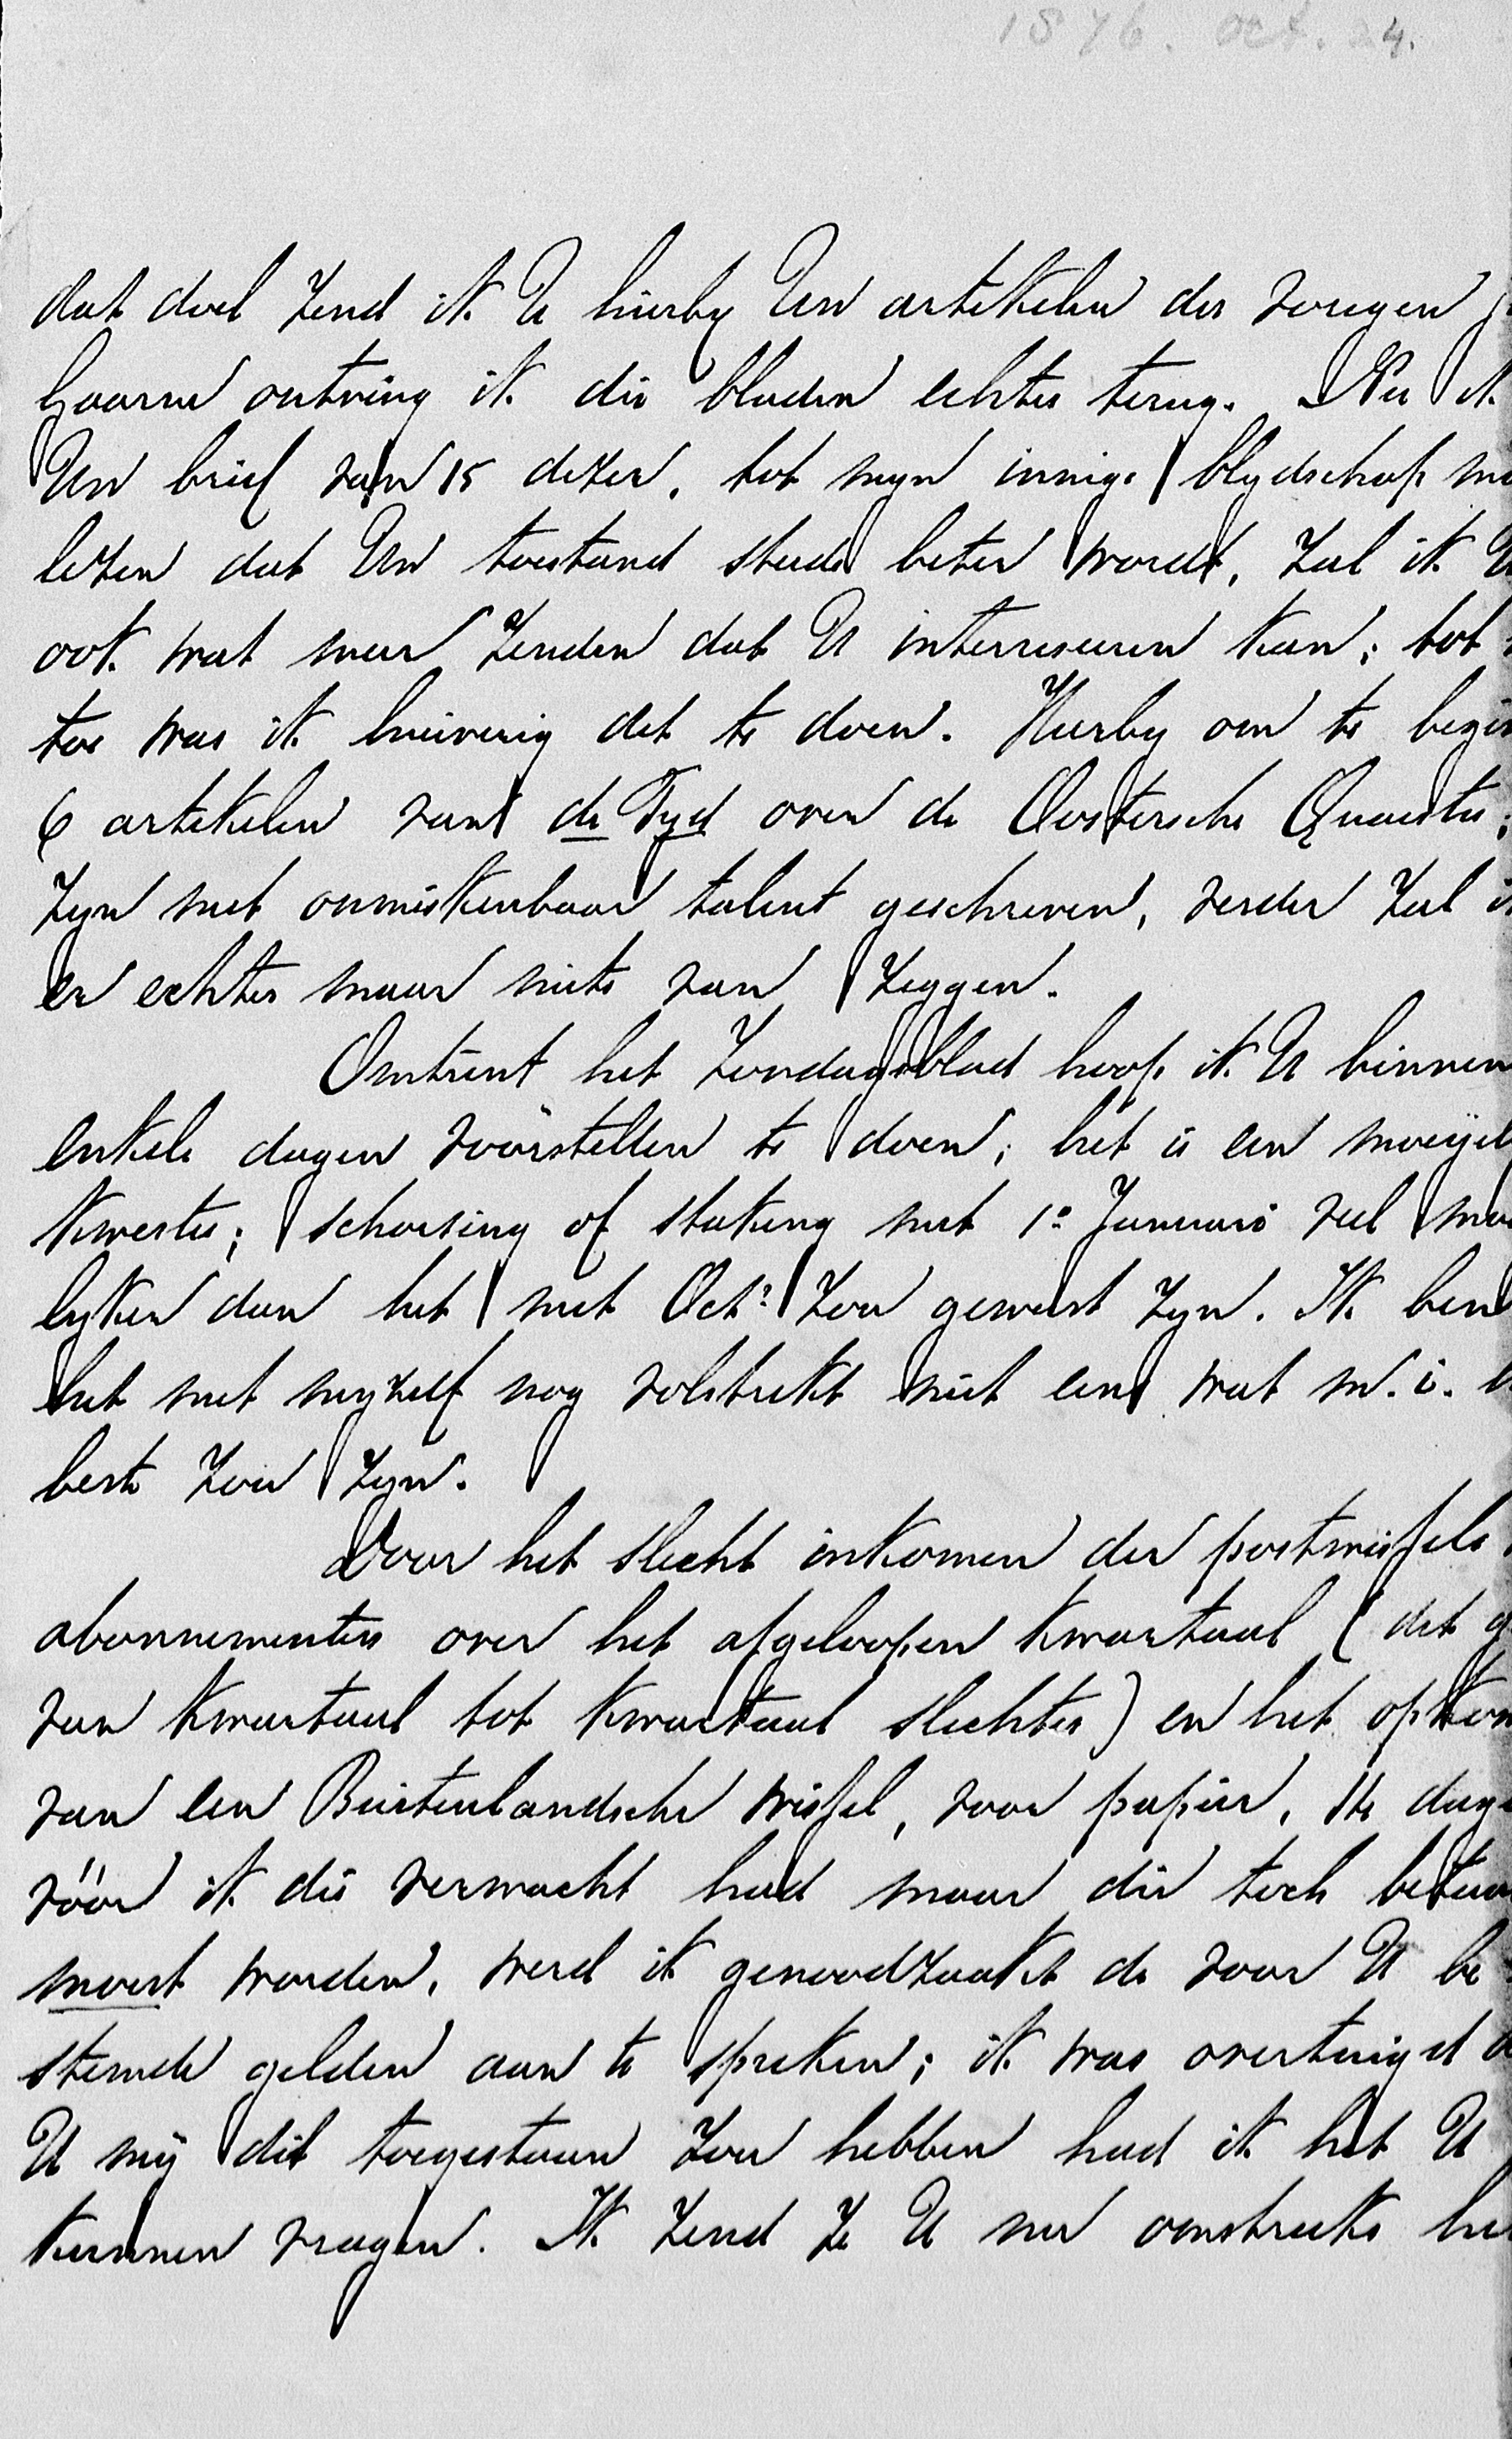 1876. oct. 24.
dat doel zend ik U hierby Uw artikelen der vorigen
Gaarne ontving ik die bladen echter terug. Nu ik
Uw brief van 15 dezer, tot myn innige blydschap
lezen dat Uw toestand steeds beter wordt, zal ik U
ook wat meer zenden dat U interresseeren kan; tot
toe was ik huiverig dit te doen. Hierby om te begin
6 artikelen van de Tyd over de Oostersche Quaestie;
zyn met onmiskenbaar talent geschreven, verder zal ik
er echter maar niets van zeggen.
Omtrent het Zondagsblad hoop ik U binnen
enkele dagen voorstellen te doen; het is een moeijel
kwestie; schorsing of staking met 1o Januari veel moe
lyker dan het met Oct. zou geweest zyn. Ik ben
het met myzelf nog volstrekt niet eens wat m. i.
beste zou zyn.
Door het slecht inkomen der postwissels
abonnementen over het afgeloopen kwartaal (dit g
van kwartaal tot kwartaal slechter) en het opkom
van een Buitenlandsche wissel, voor papier, 14 dage
vóór ik die verwacht had maar die toch betaa
moest worden, werd ik genoodzaakt de voor U be
stemde gelden aan te spreken; ik was overtuigd d
U mij dit toegestaan zou hebben had ik het U
kunnen vragen. Ik zend ze U nu onstreeks